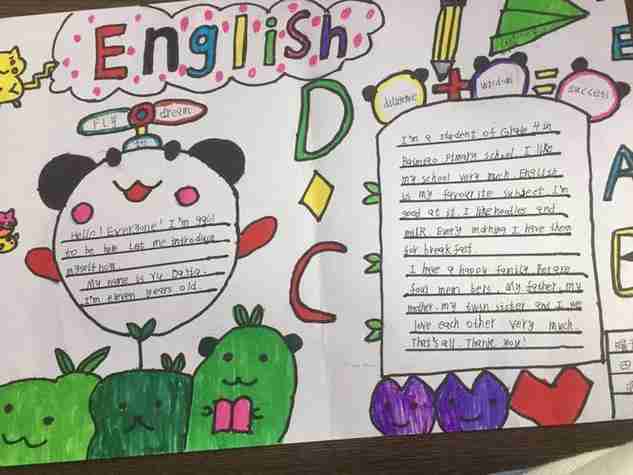 English
FLY dream
D
C
E
A
wisdom
success
Hello! Everyone! I'm glad
to be here Let me introduce
myself now.
My name is Yu
I'm eleven years old.
I'm a student of Grade 4 in
Primary school I like
my school very much. English
is my favourite subject I'm
good at it. I like noodles and
milk. Every morning I have them
for breakfast.
I have a happy family. There are
four mem bers. My father, my
mother, my twin sister and I. We
love each other very much.
That's all. Thank you!